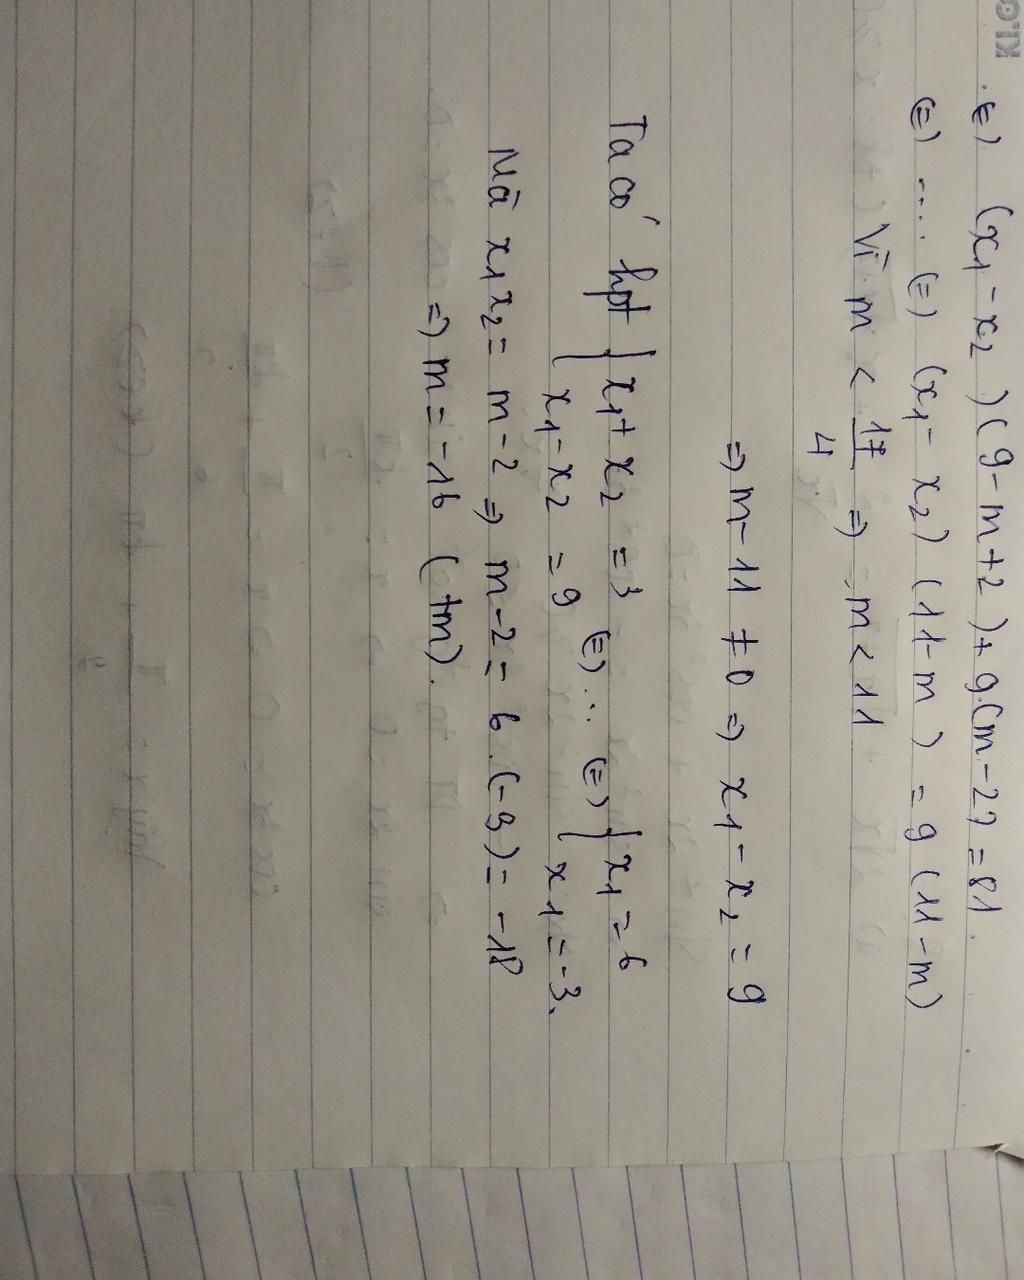 KI.O
(=) (x1 - x2)(9-m+2)+9.(m-2)=81
(=) .... (=) (x1 - x2)(11-m) = 9(11-m)
Vì m < 17/4 => m < 11
=> m-11 ≠ 0 => x1 - x2 = 9
Ta có hpt { x1 + x2 = 3 (=) ... (=) { x1 = 6
x1 - x2 = 9 x1 = -3.
Mà x1x2 = m-2 => m-2 = 6.(-3) = -18
=> m = -16 (tm).